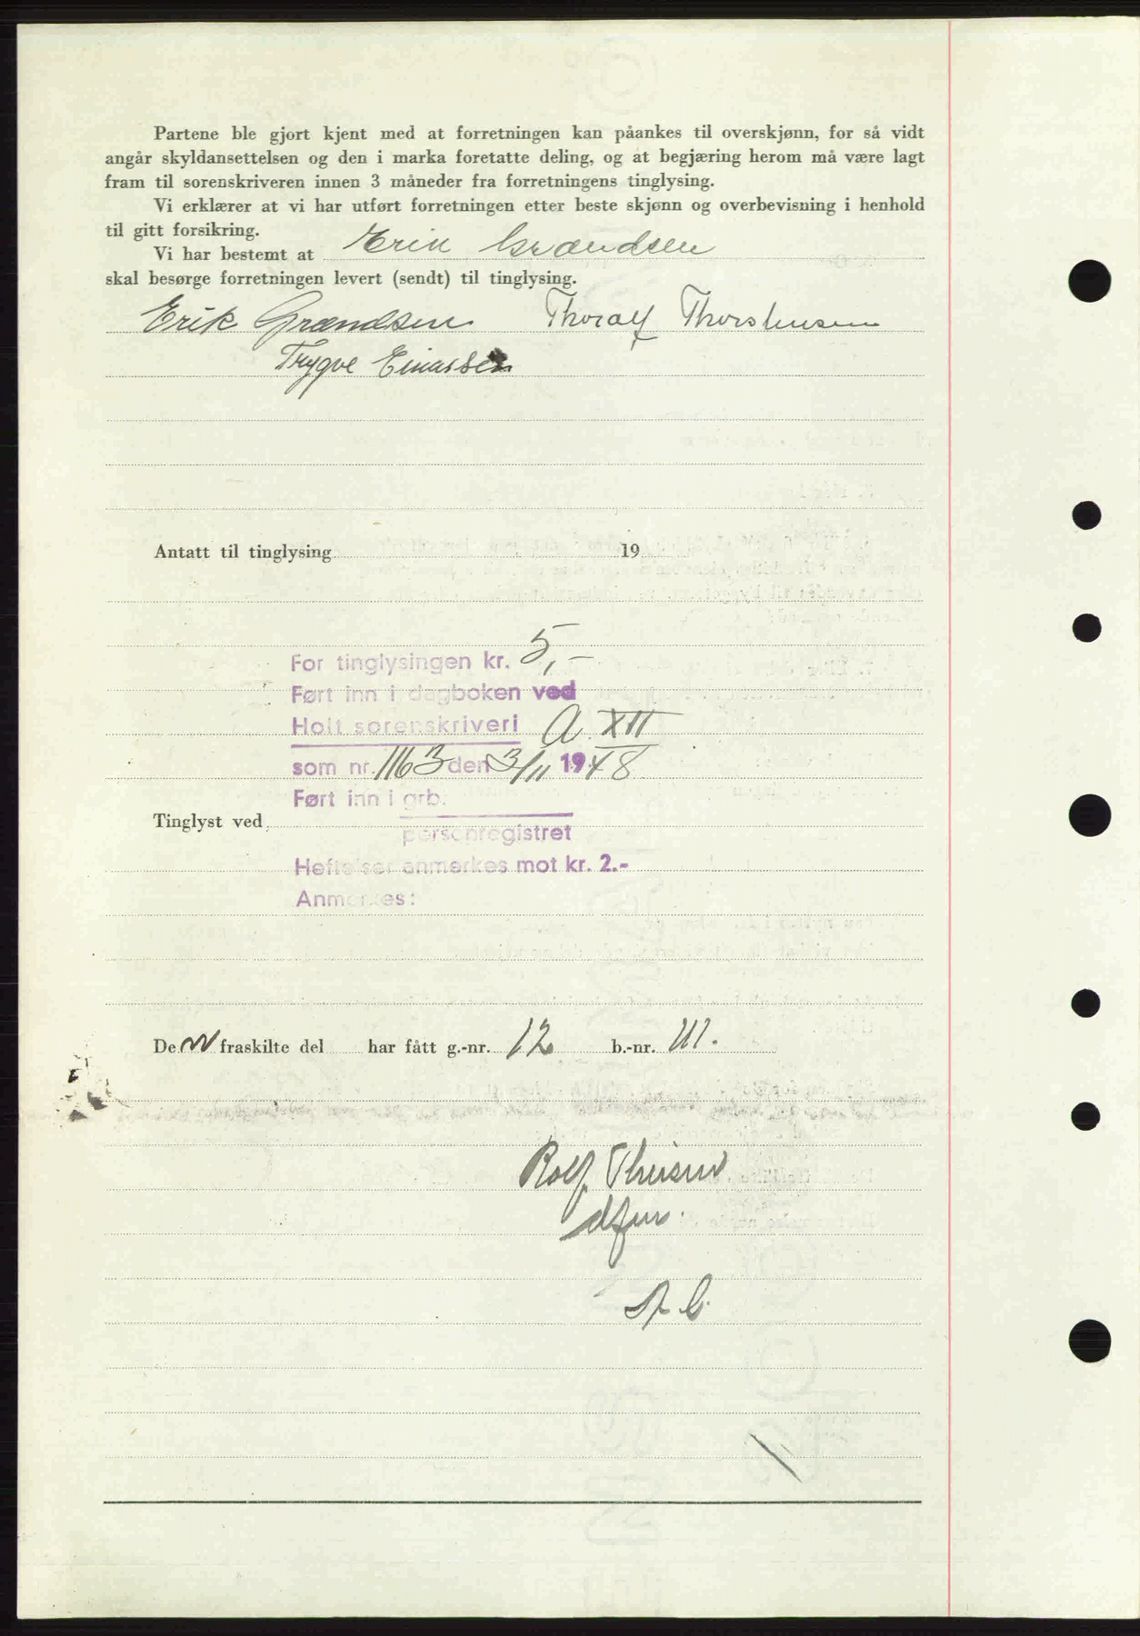 Partene ble gjort kjent med at forretningen kan påankes til overskjønn, for så vidt
angår skyldansettelsen og den i marka foretatte deling, og at begjæring herom må være lagt
fram til sorenskriveren innen 3 måneder fra forretningens tinglysing.
Vi erklærer at vi har utført forretningen etter beste skjønn og overbevisning i henhold
til gitt forsikring.
Vi har bestemt at Erik Grændsen
skal besørge forretningen levert (sendt) til tinglysing.
Erik Grændsen Thoralf Thorstensen
Trygve Einarsen
Antatt til tinglysing 19
For tinglysingen kr. 5,-
Ført inn i dagboken ved
Holt sorenskriveri A XII
som nr. 1163 den 3/11 1948
Ført inn i grb.
Tinglyst ved
personregistret
Heftelser anmerkes mot kr. 2.-
Anmerkes:
Den fraskilte del har fått g.-nr. 12 b.-nr. 111.
Rolf
dfm.